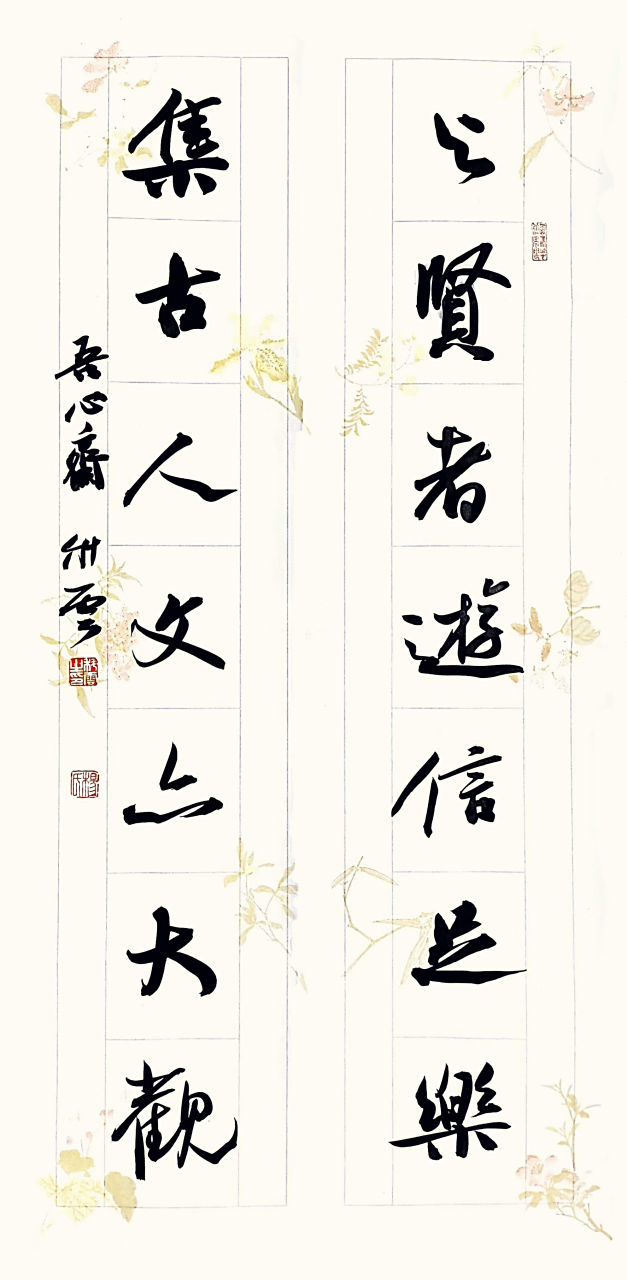 与賢者遊信足樂
集古人文亦大觀
吾心齋 竹雲